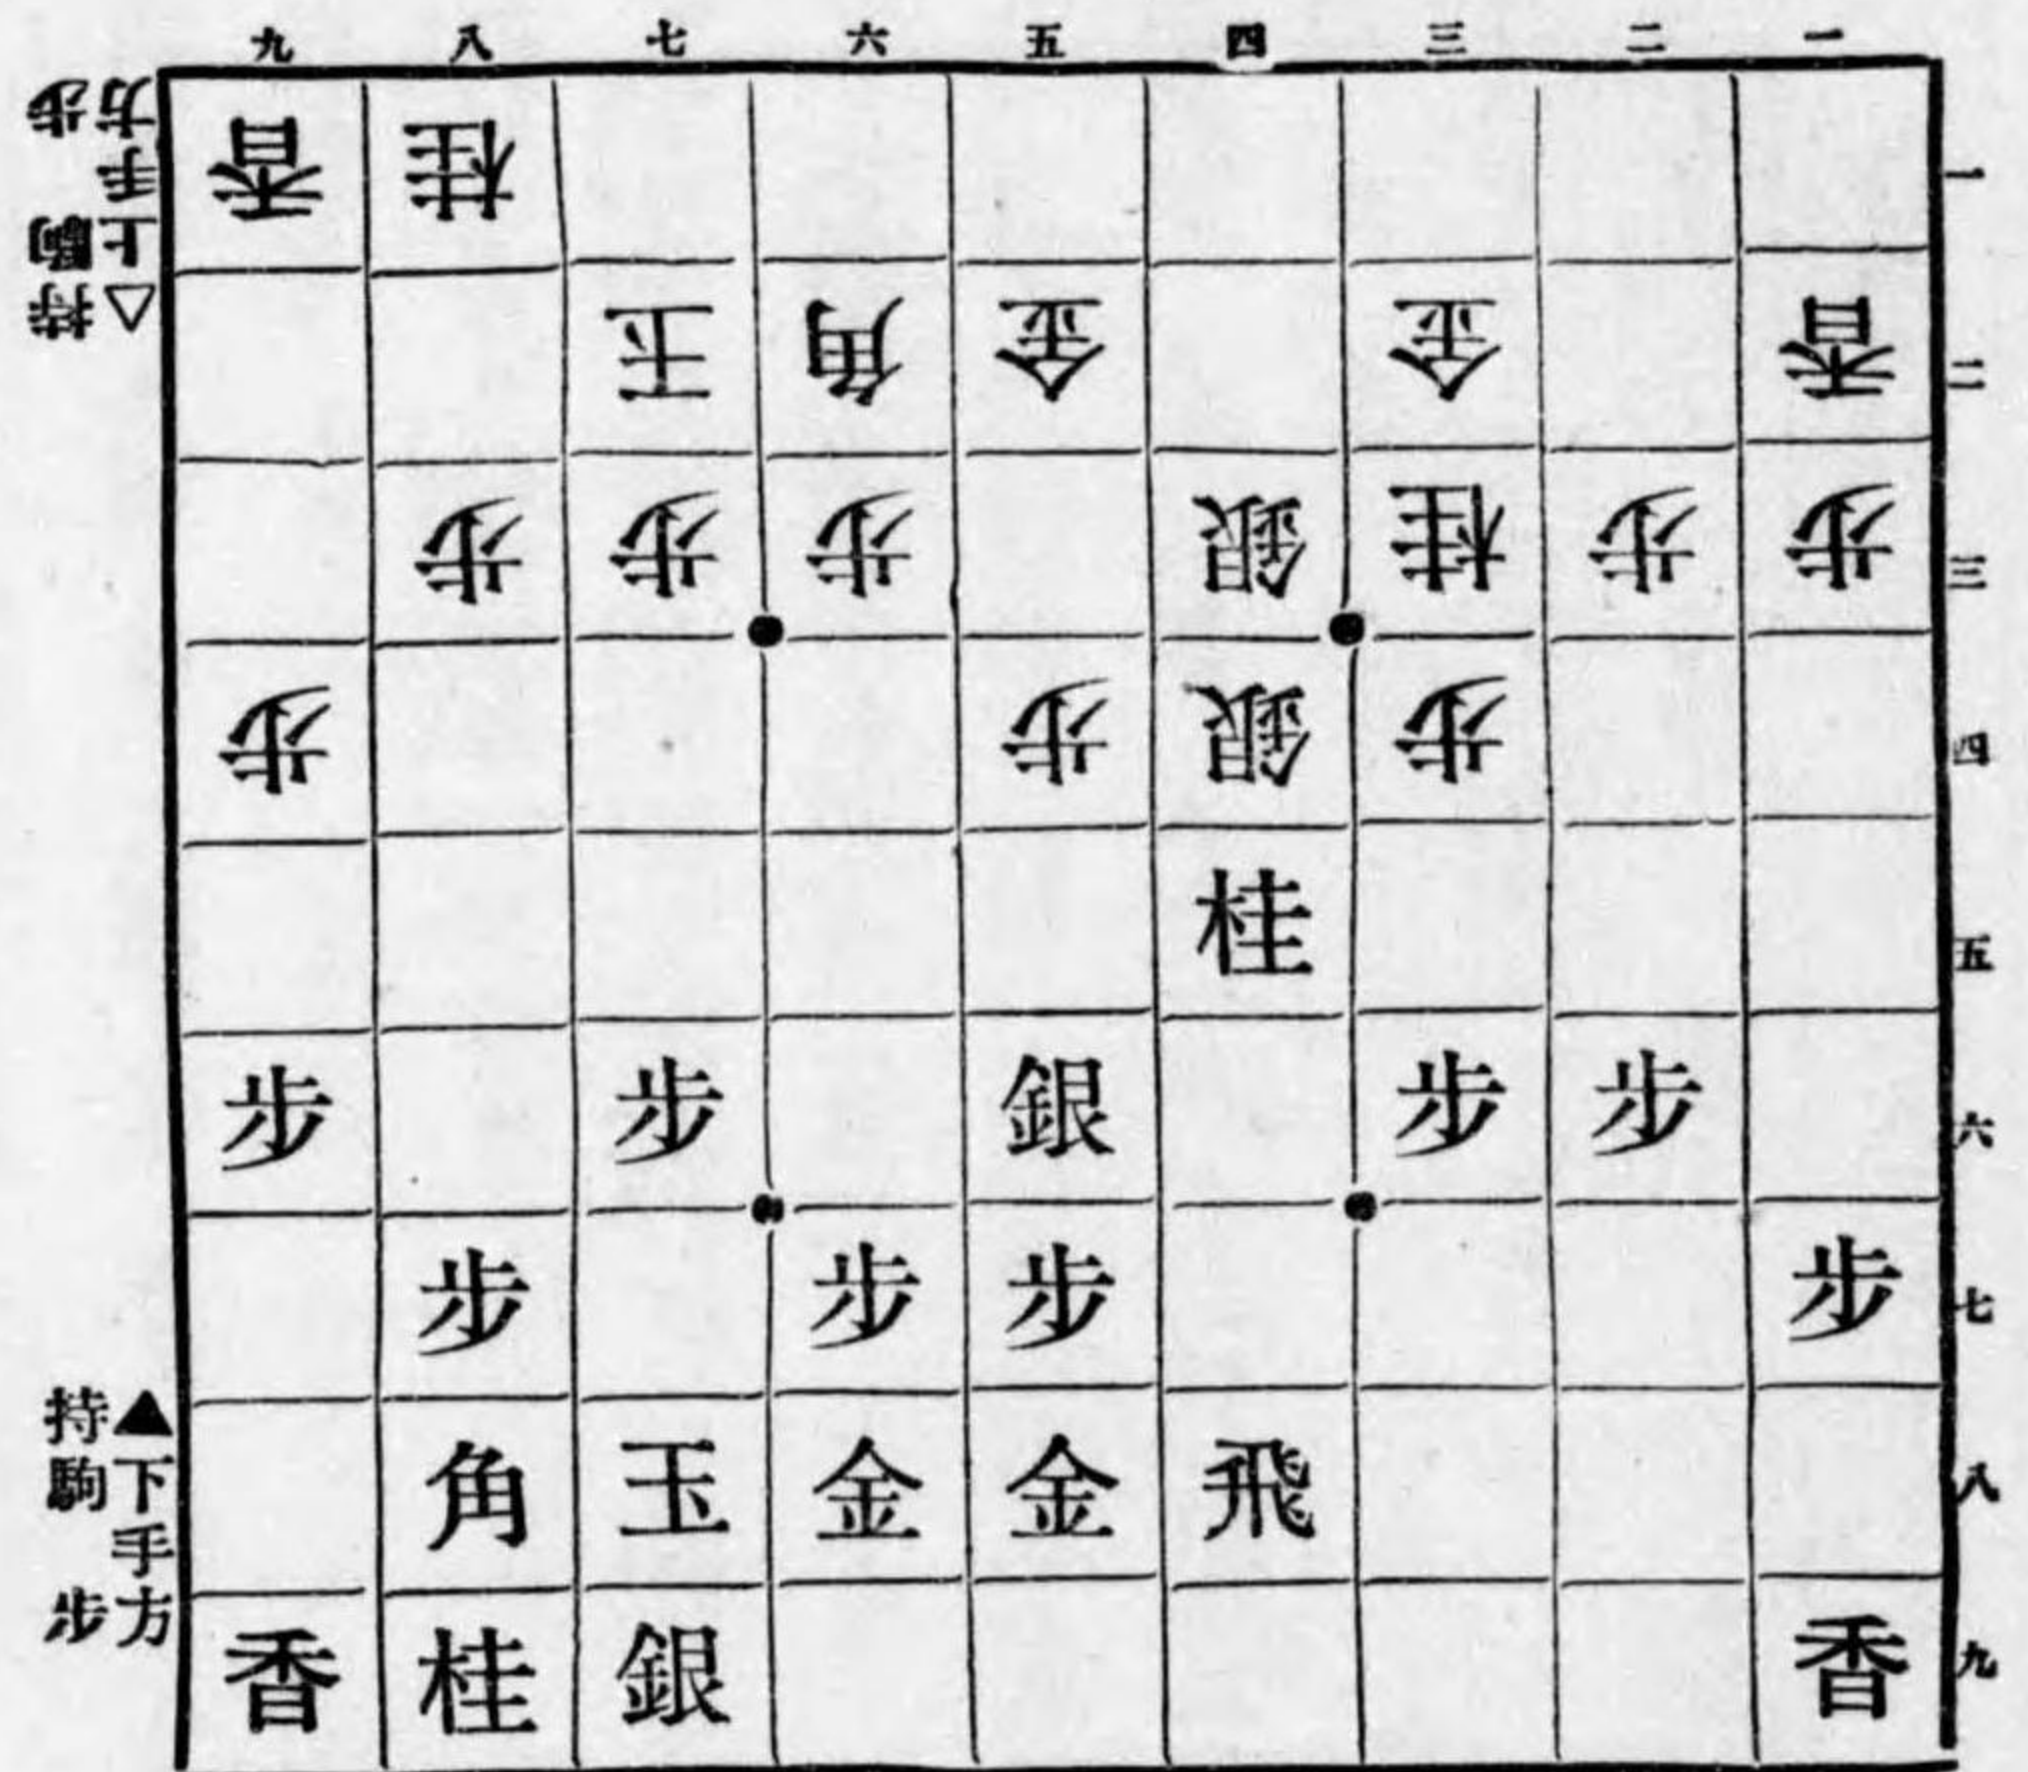 九 八 七 六 五 四 三 二 一
△上手方
持駒 歩
香 桂 一
玉 角 金 金 香 二
歩 歩 歩 銀 桂 歩 歩 三
歩 歩 銀 歩 四
桂 五
歩 歩 銀 歩 歩 六
歩 歩 歩 歩 七
角 玉 金 金 飛 八
香 桂 銀 香 九
▲下手方
持駒 歩